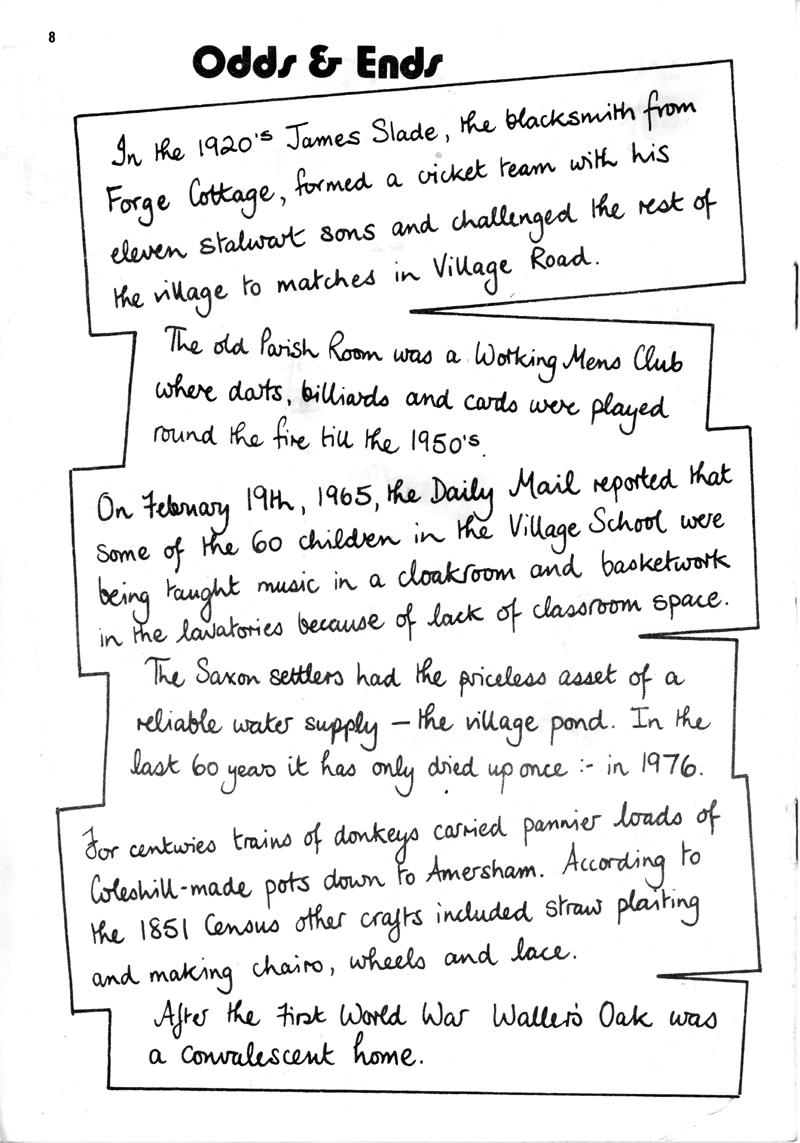 8
Odds & Ends
In the 1920's James Slade, the blacksmith from
Forge Cottage, formed a cricket team with his
eleven stalwart sons and challenged the rest of
the village to matches in Village Road.
The old Parish Room was a Working Mens Club
where darts, billiards and cards were played
round the fire till the 1950's.
On February 19th, 1965, the Daily Mail reported that
some of the 60 children in the Village School were
being taught music in a cloakroom and basketwork
in the lavatories because of lack of classroom space.
The Saxon settlers had the priceless asset of a
reliable water supply – the village pond. In the
last 60 years it has only dried up once :- in 1976.
For centuries trains of donkeys carried pannier loads of
Coleshill-made pots down to Amersham. According to
the 1851 Census other crafts included straw plaiting
and making chairs, wheels and lace.
After the First World War Waller's Oak was
a convalescent home.